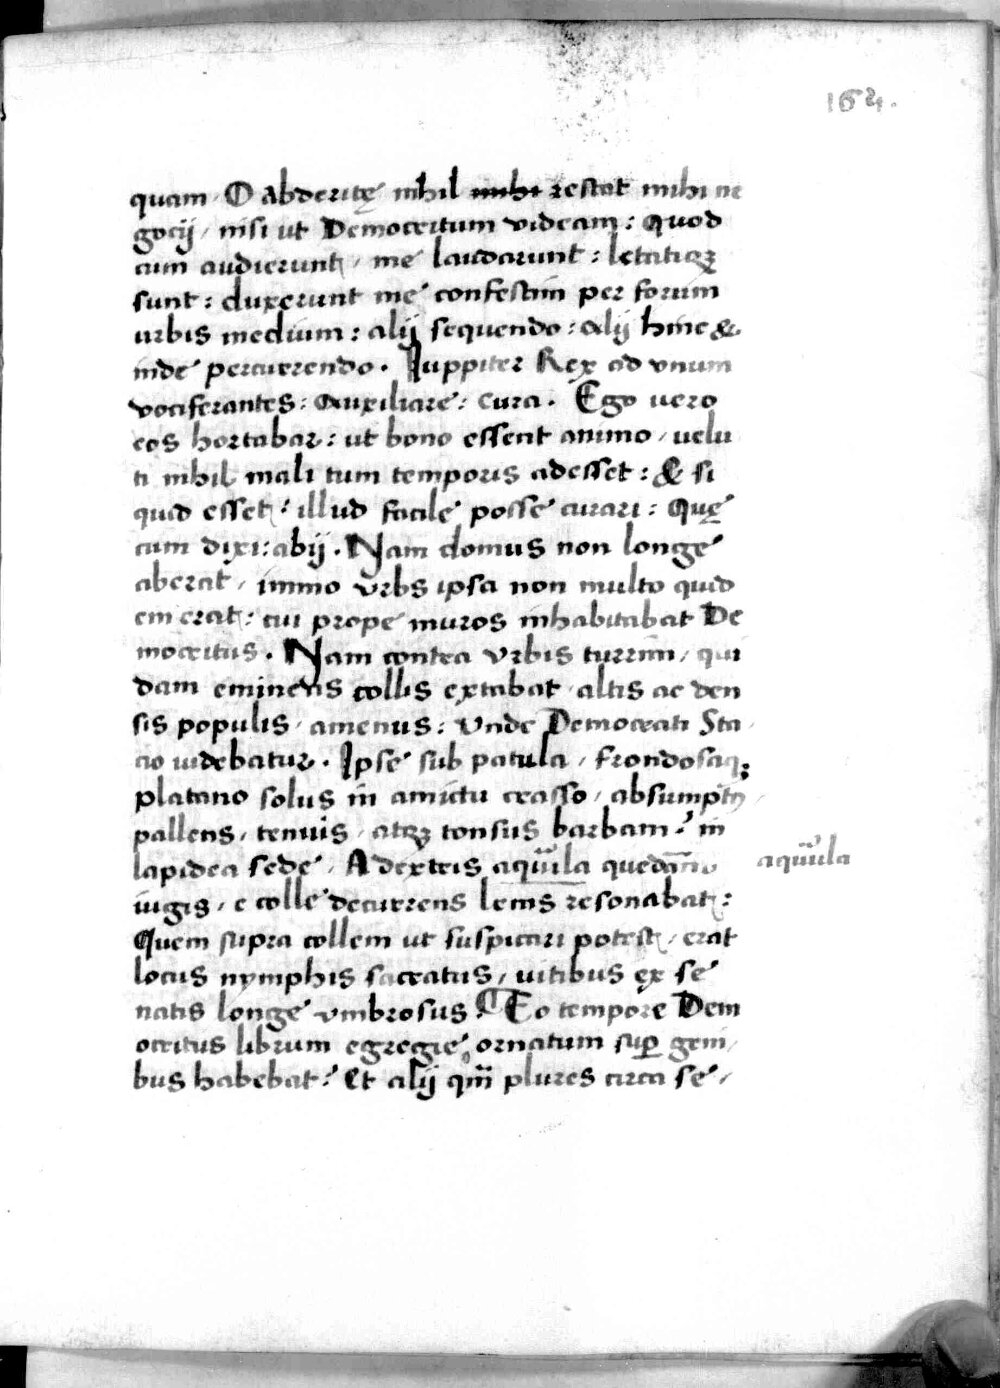 164.
quam. O Abderitę nihil mihi restat mihi ne
gocij / nisi ut Democritum videam: Quod
cum audierunt / me laudarunt: letatiqꝫ
sunt: duxerunt me confestim per forum
urbis medium: alij sequendo: alij hinc &
inde percurrendo. Iuppiter Rex ad vnum
vociferantes: Auxiliare: Cura. Ego uero
eos hortabar: ut bono essent animo / uelu
ti nihil mali tum temporis adesset: & si
quid esset: illud facile posse curari: Quę
cum dixi: abij. Nam domus non longe
aberat / immo vrbs ipsa non multo quid
em erat: cui prope muros inhabitabat De
mocritus. Nam contra vrbis turrim / qui
dam eminens collis extabat / altis ac den
sis populis / amenus: Vnde Democrati Sta
cio uidebatur. Ipse sub patula / frondosaqꝫ
platano solus in amictu crasso / absumptꝰ /
pallens / tenuis / atqꝫ tonsus barbam: in
lapidea sede / A dextris aquula quedam
aquula
iugis / e colle decurrens lenis resonabat:
Quem supra collem ut suspicari potest / erat
locus nymphis sacratus / uitibus ex se
natis longe vmbrosus: Eo tempore Dem
ocritus librum egregie ornatum suꝑ geni /
bus habebat: Et alij qm̃ plures circa se /